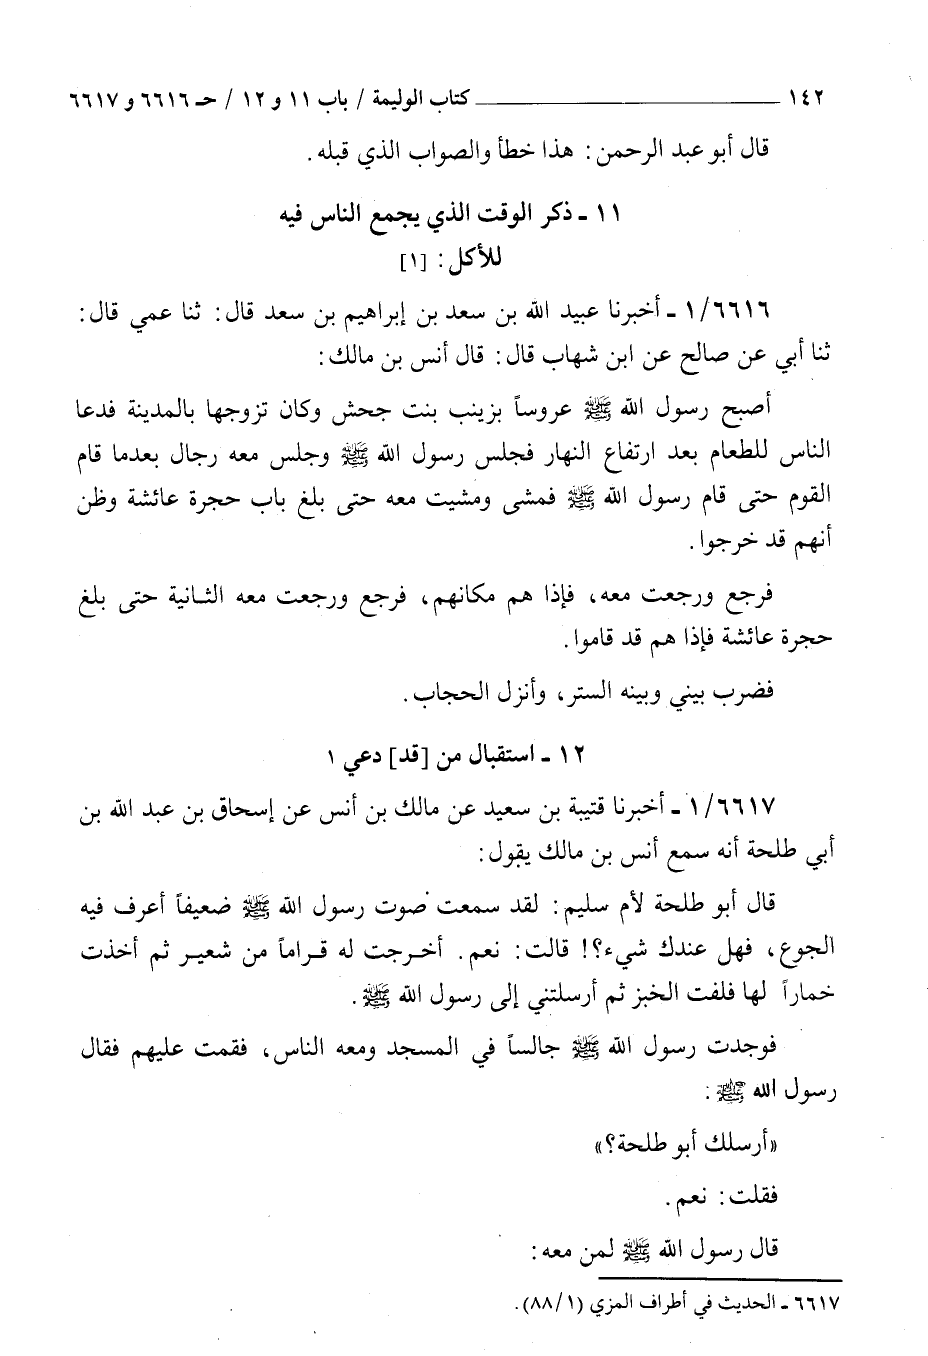 ١٤٢ ـــــــــ كتاب الوليمة / باب ١١ و ١٢ / حـ ٦٦١٦ و ٦٦١٧
قال أبو عبد الرحمن: هذا خطأ والصواب الذي قبله.
١١ ـ ذكر الوقت الذي يجمع الناس فيه
للأكل: [١]
١/٦٦١٦ ـ أخبرنا عبيد الله بن سعد بن إبراهيم بن سعد قال: ثنا عمي قال:
ثنا أبي عن صالح عن ابن شهاب قال: قال أنس بن مالك:
أصبح رسول الله ﷺ عروساً بزينب بنت جحش وكان تزوجها بالمدينة فدعا
الناس للطعام بعد ارتفاع النهار فجلس رسول الله ﷺ وجلس معه رجال بعدما قام
القوم حتى قام رسول الله ﷺ فمشى ومشيت معه حتى بلغ باب حجرة عائشة وظن
أنهم قد خرجوا.
فرجع ورجعت معه، فإذا هم مكانهم، فرجع ورجعت معه الثانية حتى بلغ
حجرة عائشة فإذا هم قد قاموا.
فضرب بيني وبينه الستر، وأنزل الحجاب.
١٢ ـ استقبال من [قد] دعي ١
١/٦٦١٧ ـ أخبرنا قتيبة بن سعيد عن مالك بن أنس عن إسحاق بن عبد الله بن
أبي طلحة أنه سمع أنس بن مالك يقول:
قال أبو طلحة لأم سليم: لقد سمعت صوت رسول الله ﷺ ضعيفاً أعرف فيه
الجوع، فهل عندك شيء؟! قالت: نعم. أخرجت له قراماً من شعير ثم أخذت
خماراً لها فلفت الخبز ثم أرسلتني إلى رسول الله ﷺ.
فوجدت رسول الله ﷺ جالساً في المسجد ومعه الناس، فقمت عليهم فقال
رسول الله ﷺ:
«أرسلك أبو طلحة؟»
فقلت: نعم.
قال رسول الله ﷺ لمن معه:
٦٦١٧ ـ الحديث في أطراف المزي (٨٨/١).